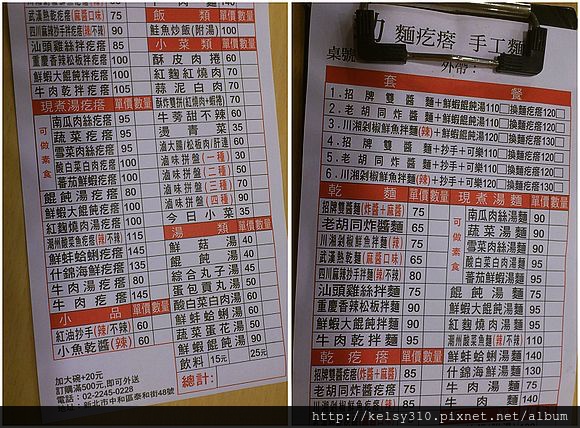 武漢熱乾疙瘩(麻醬口味) 75
四川麻辣抄手拌疙瘩(辣/不辣) 90
汕頭雞絲拌疙瘩 85
重慶香辣松板拌疙瘩 100
鮮蝦大餛飩拌疙瘩 100
牛肉乾拌疙瘩 105
現煮湯疙瘩 單價 數量
可做素食
南瓜肉絲疙瘩 95
蔬菜疙瘩 95
雪菜肉絲疙瘩 95
酸白菜白肉疙瘩 100
蕃茄鮮蝦疙瘩 100
餛飩湯疙瘩 80
鮮蝦大餛飩疙瘩 100
紅麴燒肉湯疙瘩 100
潮州酸菜魚疙瘩(辣/不辣) 115
鮮蚌蛤蜊疙瘩 145
什錦海鮮疙瘩 135
牛肉湯疙瘩 80
牛肉疙瘩 145
小品
紅油抄手(辣/不辣) 60
小魚乾醬(辣) 60
加大碗+20元
訂購滿500元,即可外送
電話:02-2245-0228
新北市中和區泰和街48號
飯類 單價 數量
鮭魚炒飯(附湯) 100
小菜類 單價 數量
酥皮肉捲 60
紅麴紅燒肉 70
蒜泥白肉 70
酥炸雙拼(紅燒肉+蝦捲) 70
牛蒡甜不辣 60
燙青菜 35
滷大腸/松板肉/肝連 60
滷味拼盤(一種) 30
滷味拼盤(二種) 50
滷味拼盤(三種) 70
滷味拼盤(四種) 90
今日小菜 35
湯類 單價 數量
鮮菇湯 40
餛飩湯 40
綜合丸子湯 45
蛋包貢丸湯 50
酸白菜白肉湯 60
鮮蚌蛤蜊湯 60
蔬菜蛋花湯 50
鮮蝦餛飩湯 90
飲料 15元 25元
總計:
麵疙瘩 手工麵
桌號
外帶:
套餐
1.招牌雙醬麵+鮮蝦餛飩湯110□換麵疙瘩120□
2.老胡同炸醬麵+鮮蝦餛飩湯110□換麵疙瘩120□
3.川湘剁椒鮮魚拌麵(辣)+鮮蝦餛飩湯120□換麵疙瘩130□
4.招牌雙醬麵+抄手+可樂110□換麵疙瘩120□
5.老胡同炸醬麵+抄手+可樂110□換麵疙瘩120□
6.川湘剁椒鮮魚拌麵(辣)+抄手+可樂120□換麵疙瘩130□
乾麵 單價 數量
招牌雙醬麵(炸醬+麻醬) 75
老胡同炸醬麵 65
川湘剁椒鮮魚拌麵(辣) 75
武漢熱乾麵(麻醬口味) 65
四川麻辣抄手拌麵(辣/不辣) 80
汕頭雞絲拌麵 75
重慶香辣松板拌麵 90
鮮蝦大餛飩拌麵 90
牛肉乾拌麵 95
乾疙瘩 單價 數量
招牌雙醬疙瘩(炸醬+麻醬) 85
老胡同炸醬疙瘩 75
現煮湯麵 單價 數量
可做素食
南瓜肉絲湯麵 90
蔬菜湯麵 90
雪菜肉絲湯麵 90
酸白菜白肉湯麵
蕃茄鮮蝦湯麵
餛飩湯麵 75
鮮蝦餛飩湯麵 90
紅麴燒肉湯麵 90
潮州酸菜魚麵(辣/不辣) 110
鮮蚌蛤蜊湯麵 140
什錦海鮮湯麵 130
牛肉湯麵 75
牛肉麵 140
http://kelsy310.pixnet.net/album